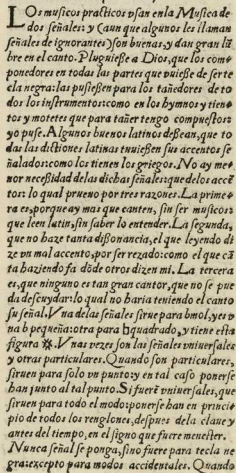 LOs musicos practicos vsan enla Musica de
dos señales: y (aun que algunos les llaman
señales de ignorantes) son buenas, y dan gran lū
bre en el canto. Pluguiesse a Dios, que los com-
ponedores en todas las partes que vuiesse de ser te
cla negra: las pusiessen para los tañedores de to
dos los instrumentos: como en los hymnos y tien-
tos y motetes que para tañer tengo compuestos:
yo puse. Algunos buenos latinos dessean, que to
das las dictiones latinas tuuiessen sus accentos se
ñalados: como los tienen los griegos. No ay me-
nor necessidad delas dichas señales: que delos accē
tos: lo qual prueuo por tres razones. La prime-
ra es, porque ay mas que canten, sin ser musicos:
que leen latin, sin saber lo entender. La segunda,
que no haze tanta dissonancia, el que leyendo di
ze vn mal accento, por ser rezado: como el que cā
ta haziendo fa dōde otros dizen mi. La tercera
es, que ninguno es tan gran cantor, que no se pue
da descuydar: lo qual no haria teniendo el canto
su señal. Vna delas señales sirue para bmol, y es v
na b pequeña: otra para ♮quadrado, y tiene esta
figura ※. Vnas vezes son las señales vniuersales
y otras particulares. Quando son particulares,
siruen para solo vn punto: y en tal caso ponerse
han junto al tal punto. Si fuerē vniuersales, que
siruen para todo el modo: ponerse han en princi-
pio de todos los renglones, despues dela claue y
antes del tiempo, en el signo que fuere menester.
Nunca señal se ponga, sino fuere para tecla ne
gra: excepto para modos accidentales. Quando